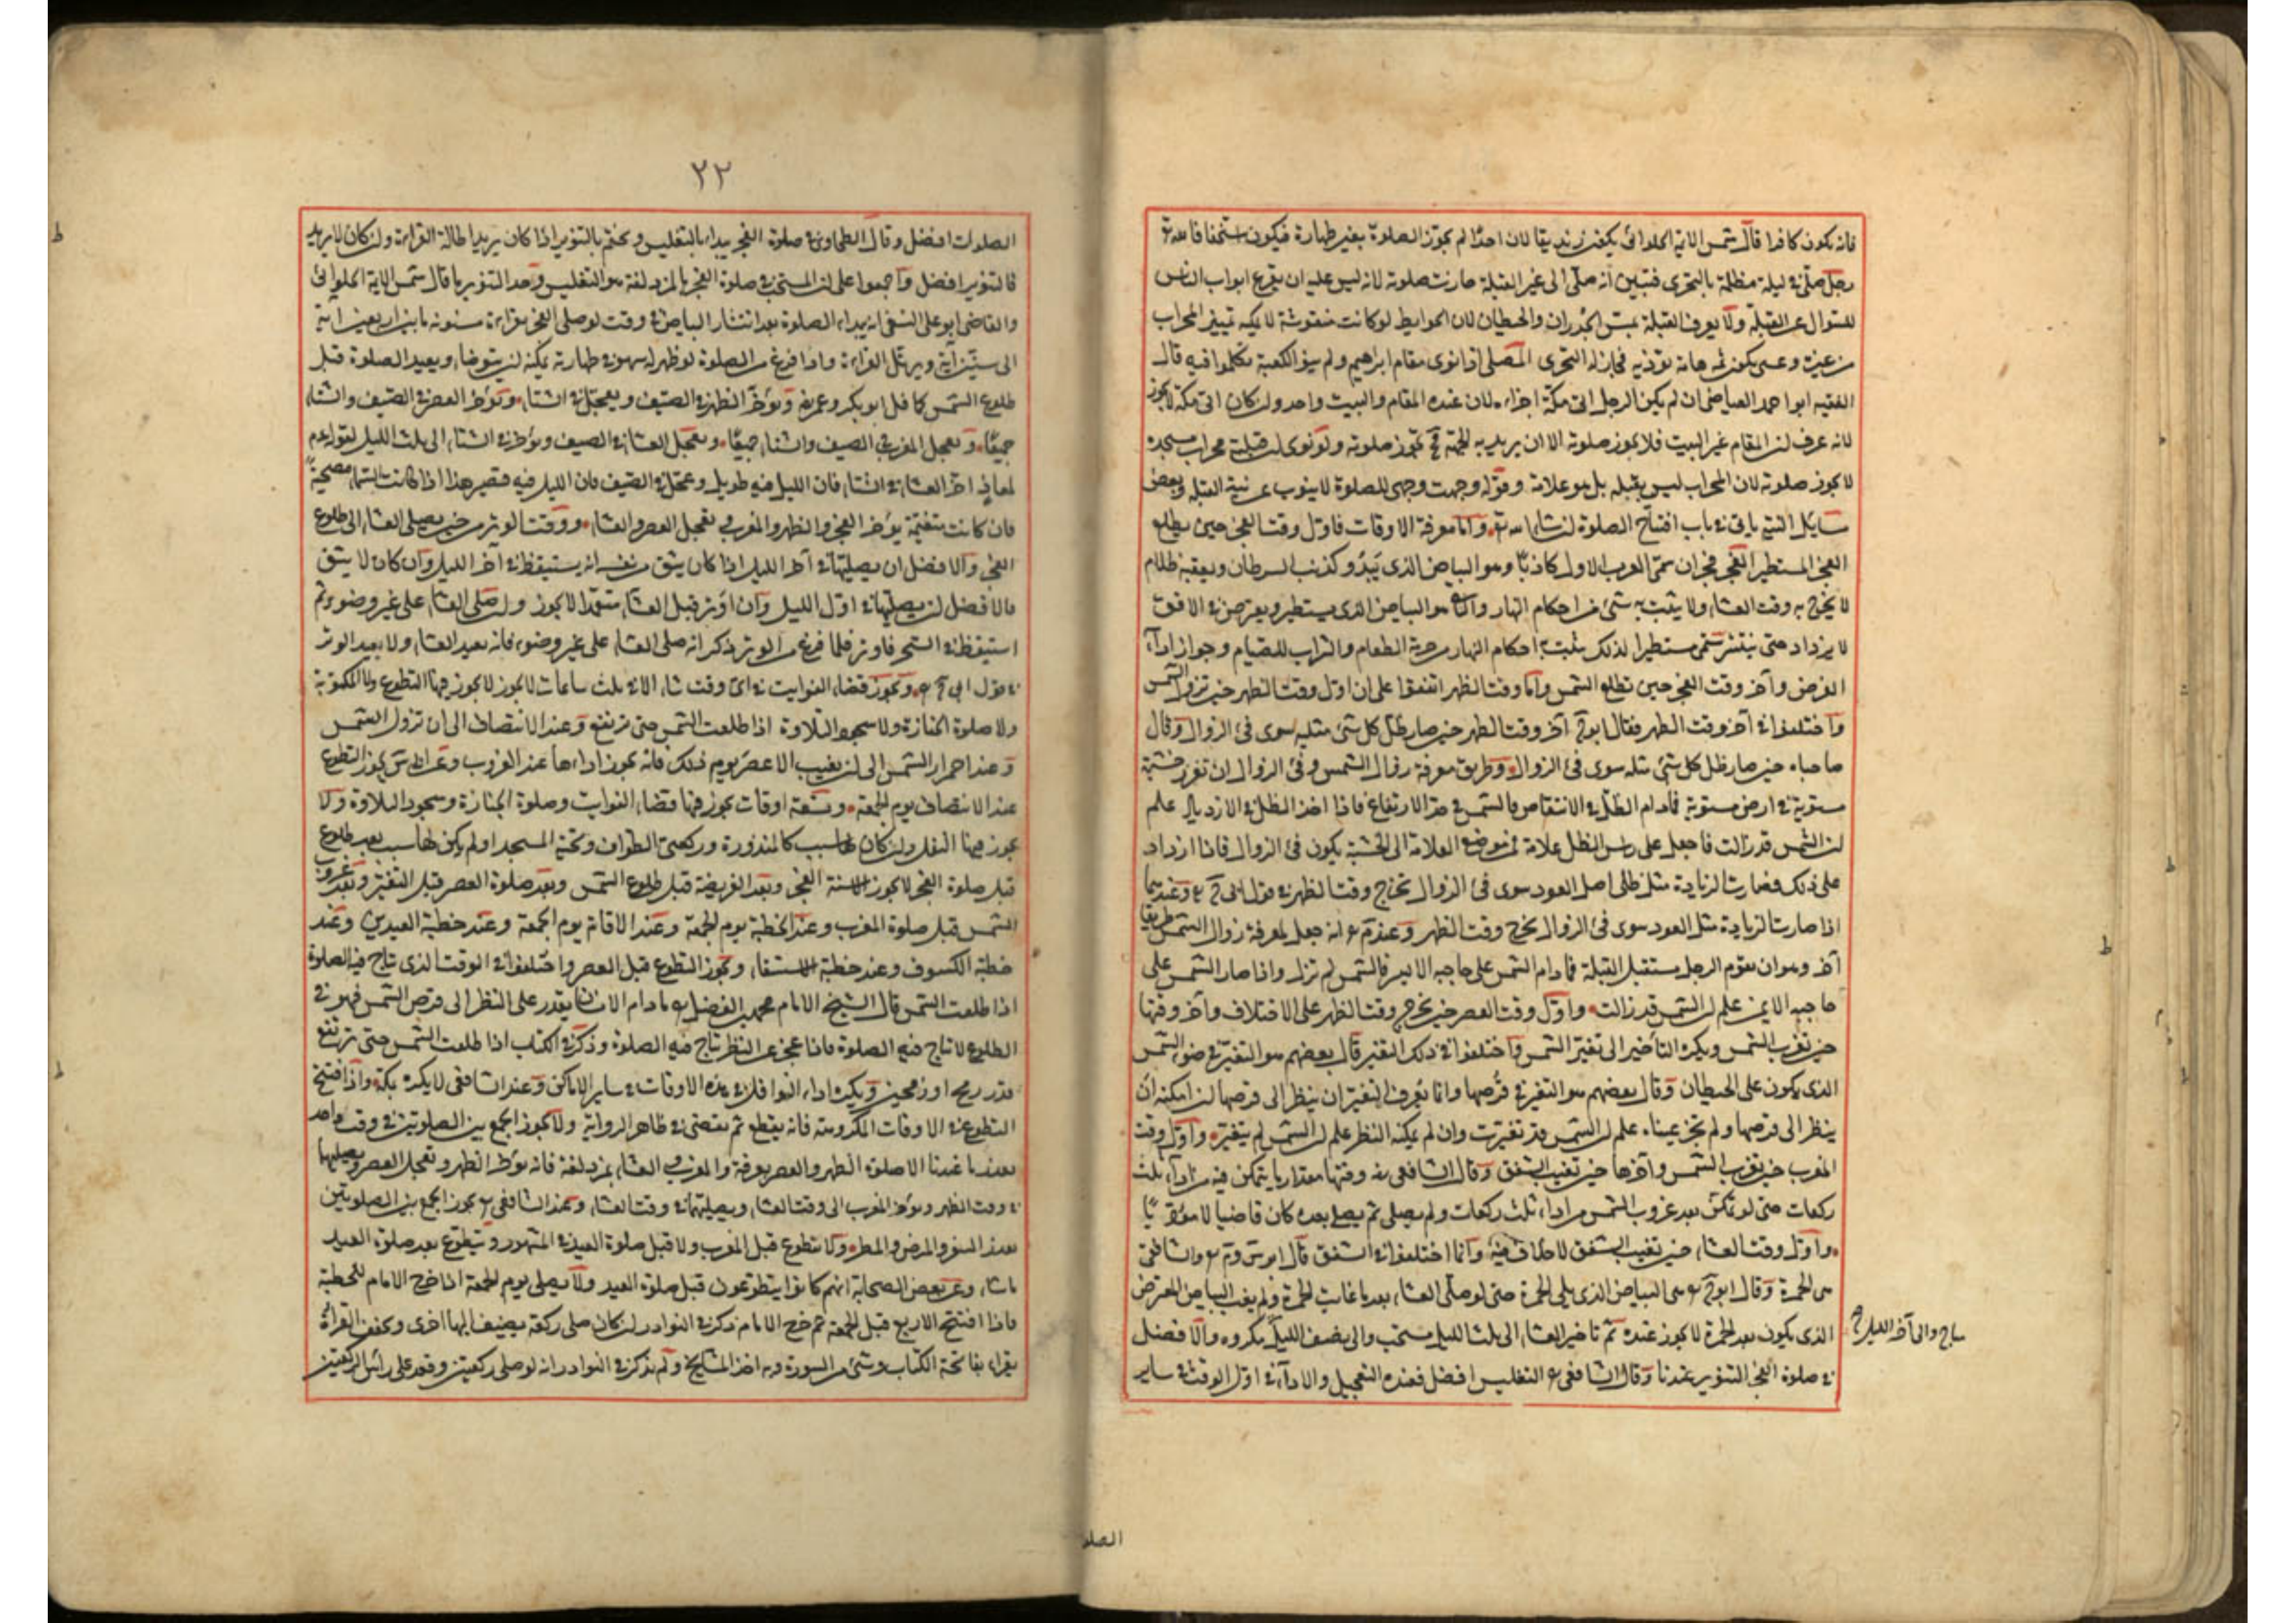 فانه يكون كافرا قال شمس الائمة الحلوانى يكون زنديقا لان احدا لم يجوز الصلوة بغير طهارة فيكون مستخفا
رجل صلى فى ليلة مظلمة بالتحرى فتبين انه صلى الى غير القبلة جازت صلوته لانه ليس عليه ان يقرع ابواب الناس
للسوال عن القبلة ولا يعرف القبلة بمس الجدران والحيطان لان الحوايط لو كانت منقوشة لا يمكنه تمييز المحراب
من غيره وعسى يكون ثمه هامة تؤذيه فجاز له التحرى المصلى اذا نوى مقام ابراهيم ولم ينو الكعبة تكلموا فيه قال
الفقيه ابو احمد العياضى ان لم يكن الرجل اتى مكة اجزاه لان عنده المقام والبيت واحد ولن كان اتى مكة لا يجوز
لانه عرف لن المقام غير البيت فلا يجوز صلوته الا ان يريد به الجهة تجوز صلوته ولو نوى لن قبلته محراب مسجده
لا يجوز صلوته لان المحراب ليس بقبلة بل هو علامة وقوله وجهت وجهى للصلوة لا ينوب عن نية القبلة وبعض
مسايل النية ياتى فى باب افتتاح الصلوة واما معرفة الاوقات فاول وقت الفجر حين يطلع
الفجر المستطير الفجر فجران سمى العرب الاول كاذبا وهو البياض الذى يبدو كذنب السرطان ويعقبه ظلام
لا يخرج به وقت العشاء ولا يثبت به شئ من احكام النهار والثانى هو البياض الذى يستطير ويعترض فى الافق
لا يزداد حتى ينتشر سمى مستطيرا لذلك يثبت به احكام النهار من حرمة الطعام والشراب للصيام وجواز اداء
الفرض وآخر وقت الفجر حين تطلع الشمس واما وقت الظهر اتفقوا على ان اول وقت الظهر حين تزول الشمس
واختلفوا فى آخر وقت الظهر فقال ابو ح آخر وقت الظهر حين صار ظل كل شئ مثليه سوى فئ الزوال وقال
صاحباه حين صار ظل كل شئ مثله سوى فئ الزوال وطريق معرفة زوال الشمس وفئ الزوال ان تغرز خشبة
مستوية فى ارض مستوية فما دام الظل فى الانتقاص فالشمس فى حد الارتفاع فاذا اخذ الظل فى الازدياد علم
لن الشمس قد زالت فاجعل على راس الظل علامة فمن موضع العلامة الى الخشبة يكون فئ الزوال فاذا ازداد
على ذلك وصارت الزيادة مثلى ظل اصل العود سوى فئ الزوال يخرج وقت الظهر فى قول ابى ح وعندهما
اذا صارت الزيادة مثل العود سوى فئ الزوال يخرج وقت الظهر وعن م انه جعل لمعرفة زوال الشمس طريقا
آخر وهو ان يقوم الرجل مستقبل القبلة فما دام الشمس على حاجبه الايسر فالشمس لم تزل واذا صار الشمس على
حاجبه الايمن علم لن الشمس قد زالت واول وقت العصر حين يخرج وقت الظهر على الاختلاف وآخر وقتها
حين تغرب الشمس ويكره التأخير الى تغير الشمس واختلفوا فى ذلك التغير قال بعضهم هو التغير فى ضوء الشمس
الذى يكون على الحيطان وقال بعضهم هو التغير فى قرصها وانما يعرف التغير ان ينظر الى قرصها لن امكنه ان
ينظر الى قرصها ولم تحر عيناه علم لن الشمس قد تغيرت وان لم يمكنه النظر علم لن الشمس لم يتغير واول وقت
المغرب حين تغرب الشمس وآخرها حين تغيب الشفق وقال الشافعى وقتها مقدار ما يتمكن فيه من اداء ثلث
ركعات حتى لو تمكن بعد غروب الشمس من اداء ثلث ركعات ولم يصلى ثم يصلى بعده كان قاضيا لا مؤديا
واول وقت العشاء حين تغيب الشفق لا خلاف فيه وانما اختلفوا فى الشفق قال ابو س و م والشافعى
هى الحمرة وقال ابو ح هى البياض الذى يلى الحمرة حتى لو صلى العشاء بعد ما غابت الحمرة ولم يغب البياض المعترض
الذى يكون بعد الحمرة لا يجوز عنده ثم تاخير العشاء الى ثلث الليل مستحب والى نصف الليل مكروه والافضل
مباح والى آخر الليل
فى صلوة الفجر التنوير عندنا وقال الشافعى التغليس افضل فعنده التعجيل والاداء فى اول الوقت فى ساير
الصلو
٢٢
الصلوات افضل وقال الطحاوى فى صلوة الفجر يبداء بالتغليس ويختم بالتنوير اذا كان يريد اطالة القراءة ولن كان لا يريد
فالتنوير افضل واجمعوا على لن المستحب فى صلوة الفجر بالمزدلفة هو التغليس وحد التنوير ما قال شمس الائمة الحلوانى
والقاضى ابو على النسفى انه يبداء الصلوة بعد انتشار البياض فى وقت لو صلى الفجر بقراءة مسنونة ما بين اربعين آية
الى ستين آية ويرتل القراءة واذا فرغ من الصلوة لو ظهر له سهو فى طهارته يمكنه لن يتوضا ويعيد الصلوة قبل
طلوع الشمس كما فعل ابو بكر وعمر ويؤخر الظهر فى الصيف ويعجل فى الشتاء ويؤخر العصر فى الصيف والشتاء
جميعا ويعجل المغرب فى الصيف والشتاء جميعا ويعجل العشاء فى الصيف ويؤخر فى الشتاء الى ثلث الليل لقوله عم
لمعاذ اخر العشاء فى الشتاء فان الليل فيه طويل وعجل فى الصيف فان الليل فيه قصير هذا اذا كانت السماء مصحية
فان كانت متغيمة يؤخر الفجر والظهر والمغرب ويعجل العصر والعشاء ووقت الوتر من حين يصلى العشاء الى طلوع
الفجر والافضل ان يصليها فى آخر الليل اذا كان يثق من نفسه انه يستيقظ فى آخر الليل وان كان لا يثق
فالافضل لن يصليها فى اول الليل وان اوتر قبل العشاء متعمدا لا يجوز ولن صلى العشاء على غير وضوء ثم
استيقظ فى السحر فاوتر فلما فرغ من الوتر ذكر انه صلى العشاء على غير وضوء فانه يعيد العشاء ولا يعيد الوتر
فى قول ابى ح ويجوز قضاء الفوايت فى اى وقت شاء الا فى ثلث ساعات لا يجوز فيها التطوع ولا المكتوبة
ولا صلوة الجنازة ولا سجود التلاوة اذا طلعت الشمس حتى ترتفع وعند الانتصاف الى ان تزول الشمس
وعند احمرار الشمس الى لن تغيب الا عصر يوم ذلك فانه يجوز اداءها عند الغروب وعن ابى س يجوز التطوع
عند الانتصاف يوم الجمعة وتسعة اوقات يجوز فيها قضاء الفوايت وصلوة الجنازة وسجود التلاوة ولا
يجوز فيها النفل ولن كان لها سبب كالمنذورة وركعتى الطواف وتحية المسجد او لم يكن لها سبب بعد طلوع
قبل صلوة الفجر لا يجوز الا سنة الفجر وبعد الفريضة قبل طلوع الشمس وبعد صلوة العصر قبل التغير وبعد غروب
الشمس قبل صلوة المغرب وعند الخطبة يوم الجمعة وعند الاقامة يوم الجمعة وعند خطبة العيدين وعند
خطبة الكسوف وعند خطبة الاستسقاء ويجوز التطوع قبل العصر واختلفوا فى الوقت الذى تباح فيه الصلوة
اذا طلعت الشمس قال الشيخ الامام محمد بن الفضل ما دام الانسان يقدر على النظر الى قرص الشمس فهو فى
الطلوع لا تباح فيه الصلوة فاذا عجز عن النظر تباح فيه الصلوة وذكر فى الكتاب اذا طلعت الشمس حتى ترتفع
قدر رمح او رمحين ويكره اداء النوافل فى هذه الاوقات فى ساير الاماكن وعند الشافعى لا يكره بمكة واذا افتتح
التطوع فى الاوقات المكروهة فانه يقطع ثم يقضى فى ظاهر الرواية ولا يجوز الجمع بين الصلوتين فى وقت واحد
بعذر ما عندنا الا صلوة الظهر والعصر بعرفة والمغرب والعشاء بمزدلفة فانه يؤخر الظهر ويعجل العصر ويصليهما
فى وقت الظهر ويؤخر المغرب الى وقت العشاء ويصليهما فى وقت العشاء وعند الشافعى يجوز الجمع بين الصلوتين
بعذر السفر والمرض والمطر ولا يتطوع قبل المغرب ولا قبل صلوة العيد فى المشهور ويتطوع بعد صلوة العيد
ما شاء وعن بعض الصحابة انهم كانوا يتطوعون قبل صلوة العيد ولا يصلى يوم الجمعة اذا خرج الامام للخطبة
فاذا افتتح الاربع قبل الجمعة ثم خرج الامام ذكر فى النوادر لن كان صلى ركعة يضيف اليها اخرى ويخفف القراءة
يقراء بفاتحة الكتاب وشئ من السورة وبه اخذ المشايخ ولم يذكر فى النوادر انه لو صلى ركعتين وقعد على راس الركعتين